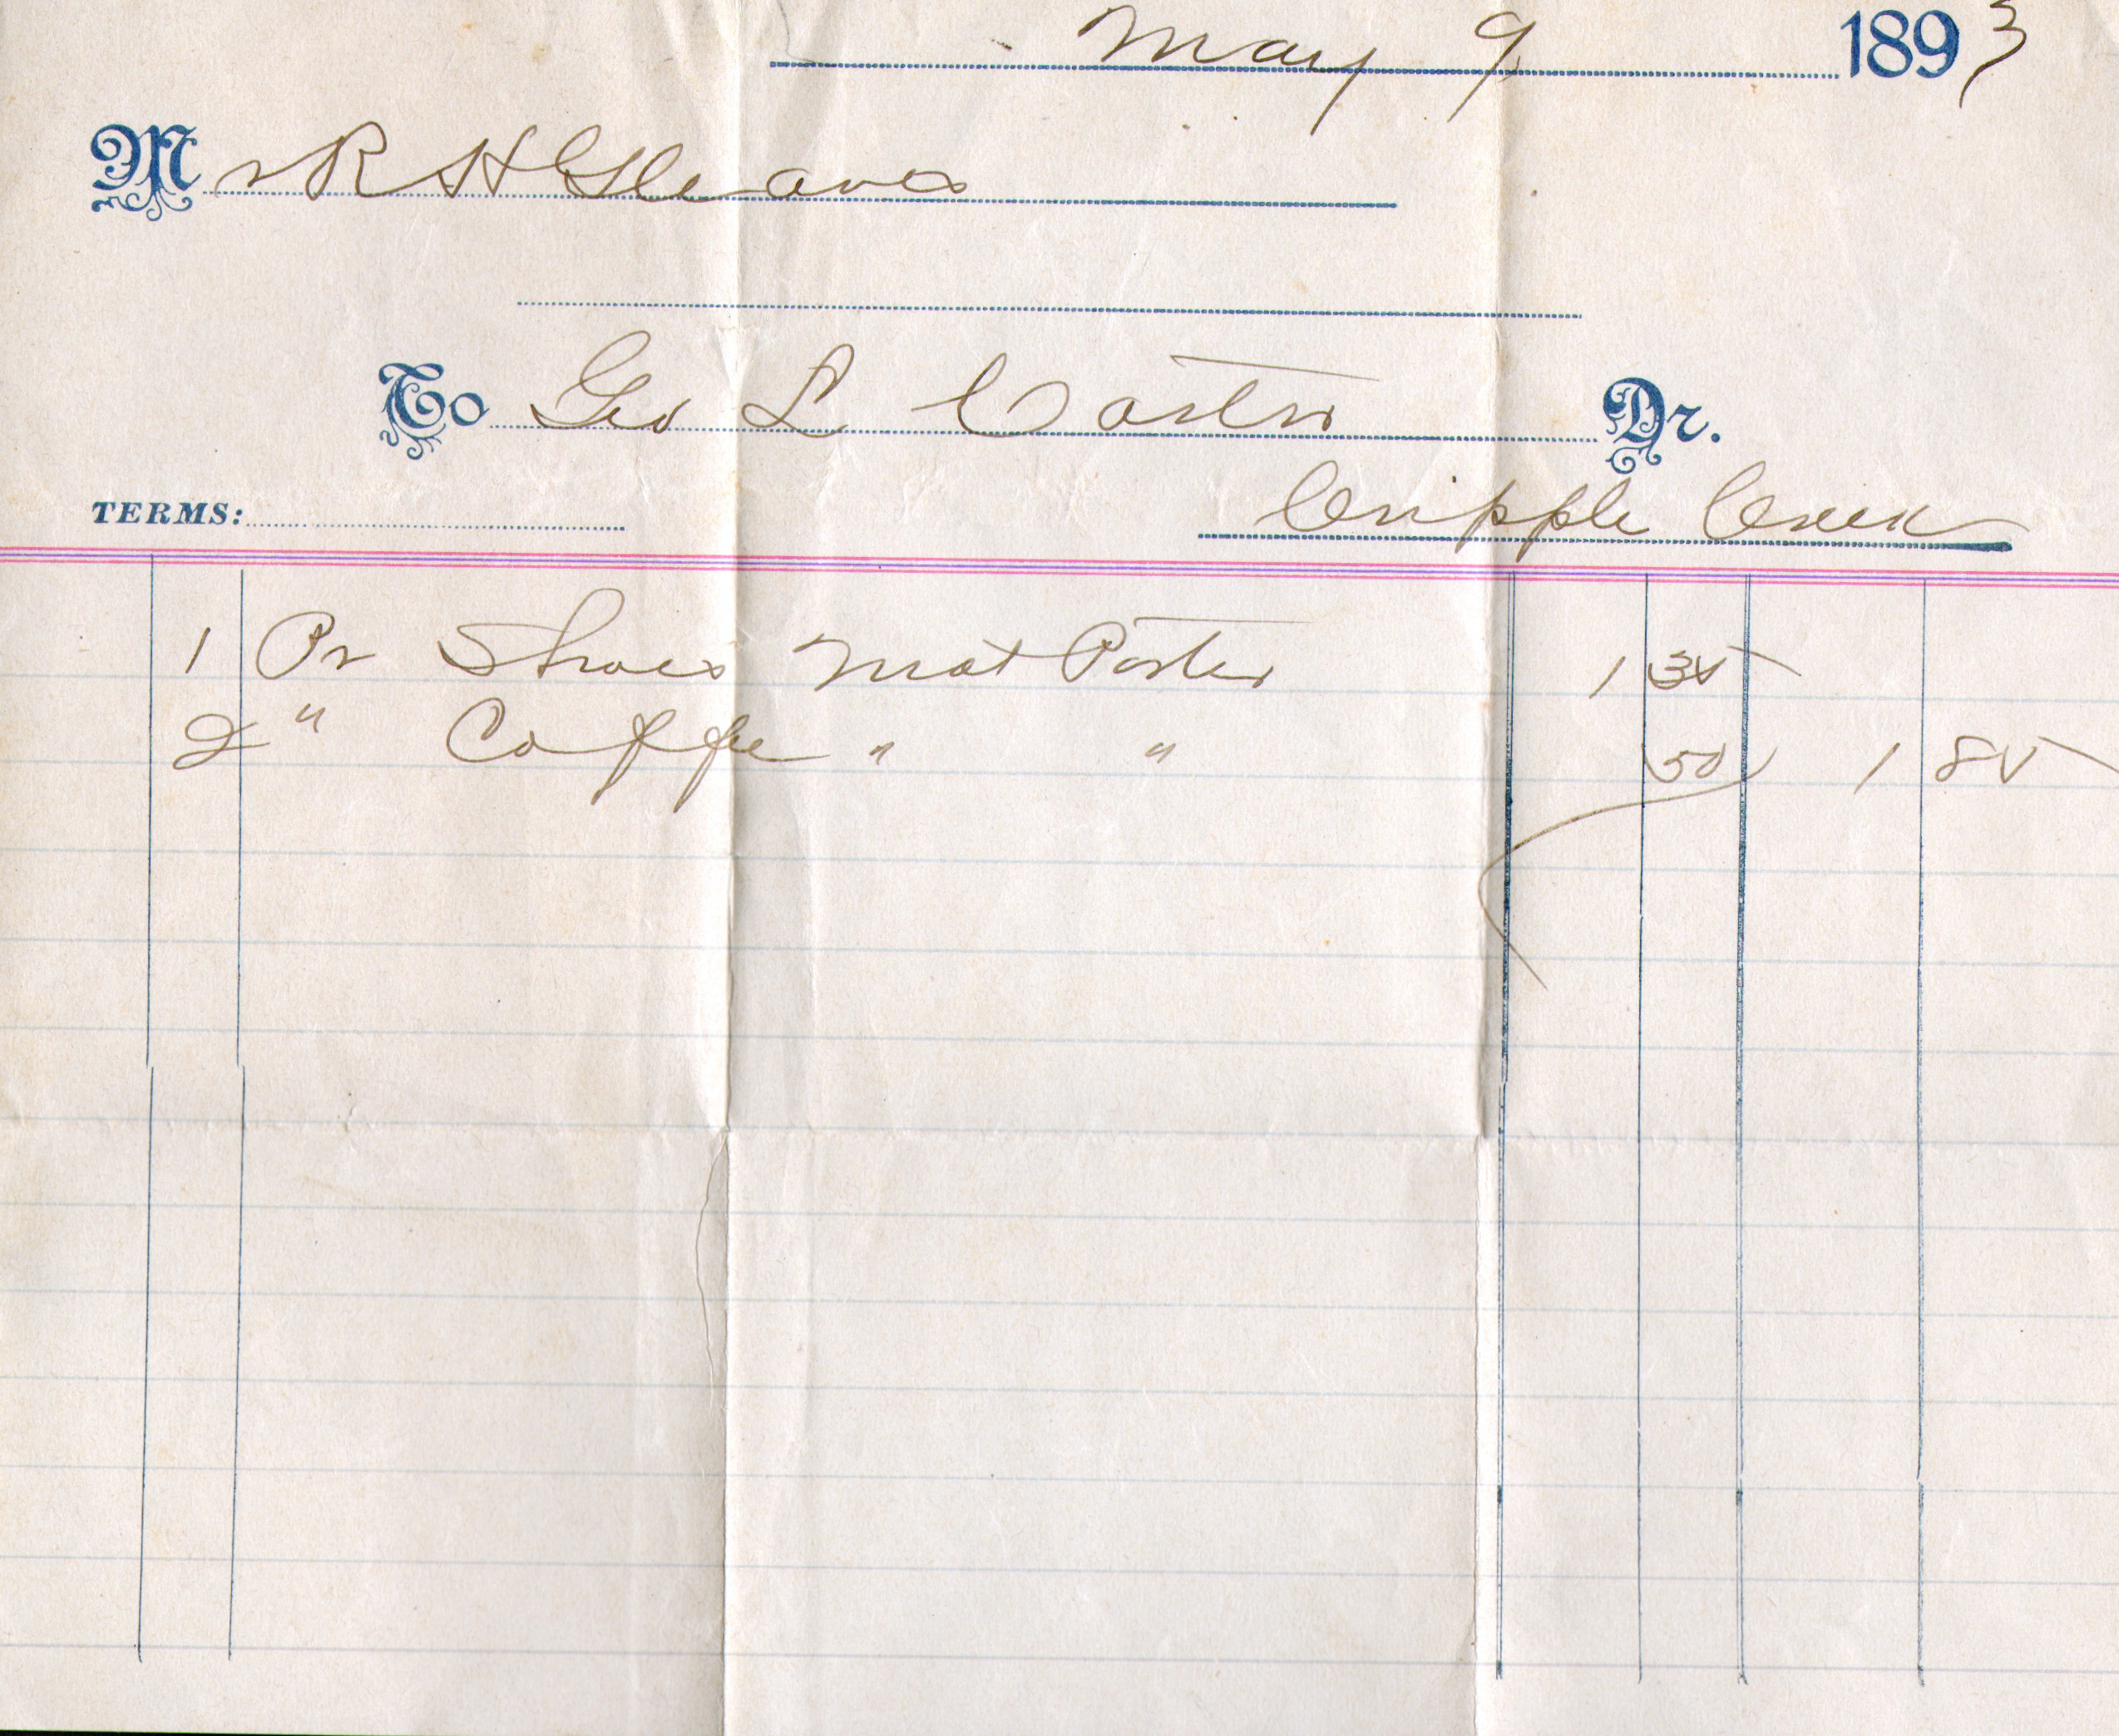 May 9 1893
Mr R H Gleaves
To Geo L Carter Dr.
TERMS: Cripple Creek
1 Pr Shoes Mat Porter 1 35
2 " Coffee " " 50 1 85